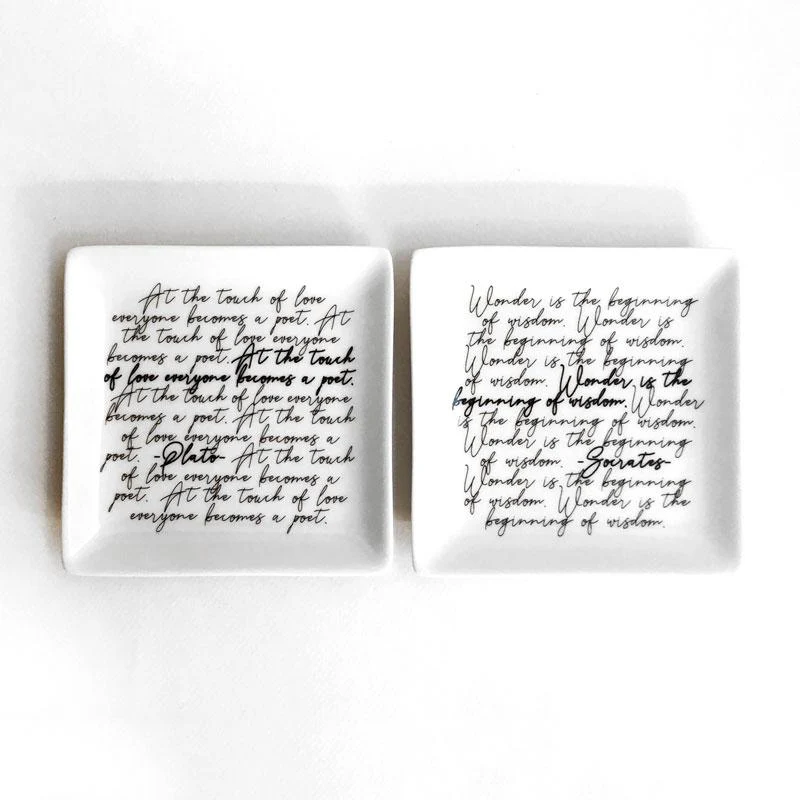 At the touch of love
everyone becomes a poet. At
the touch of love everyone
becomes a poet. At the touch
of love everyone becomes a poet.
At the touch of love everyone
becomes a poet. At the touch
of love everyone becomes a
poet. -Plato- At the touch
of love everyone becomes a
poet. At the touch of love
everyone becomes a poet.
Wonder is the beginning
of wisdom. Wonder is
the beginning of wisdom.
Wonder is the beginning
of wisdom. Wonder is the
beginning of wisdom. Wonder
is the beginning of wisdom.
Wonder is the beginning
of wisdom. -Socrates-
Wonder is the beginning
of wisdom. Wonder is the
beginning of wisdom.